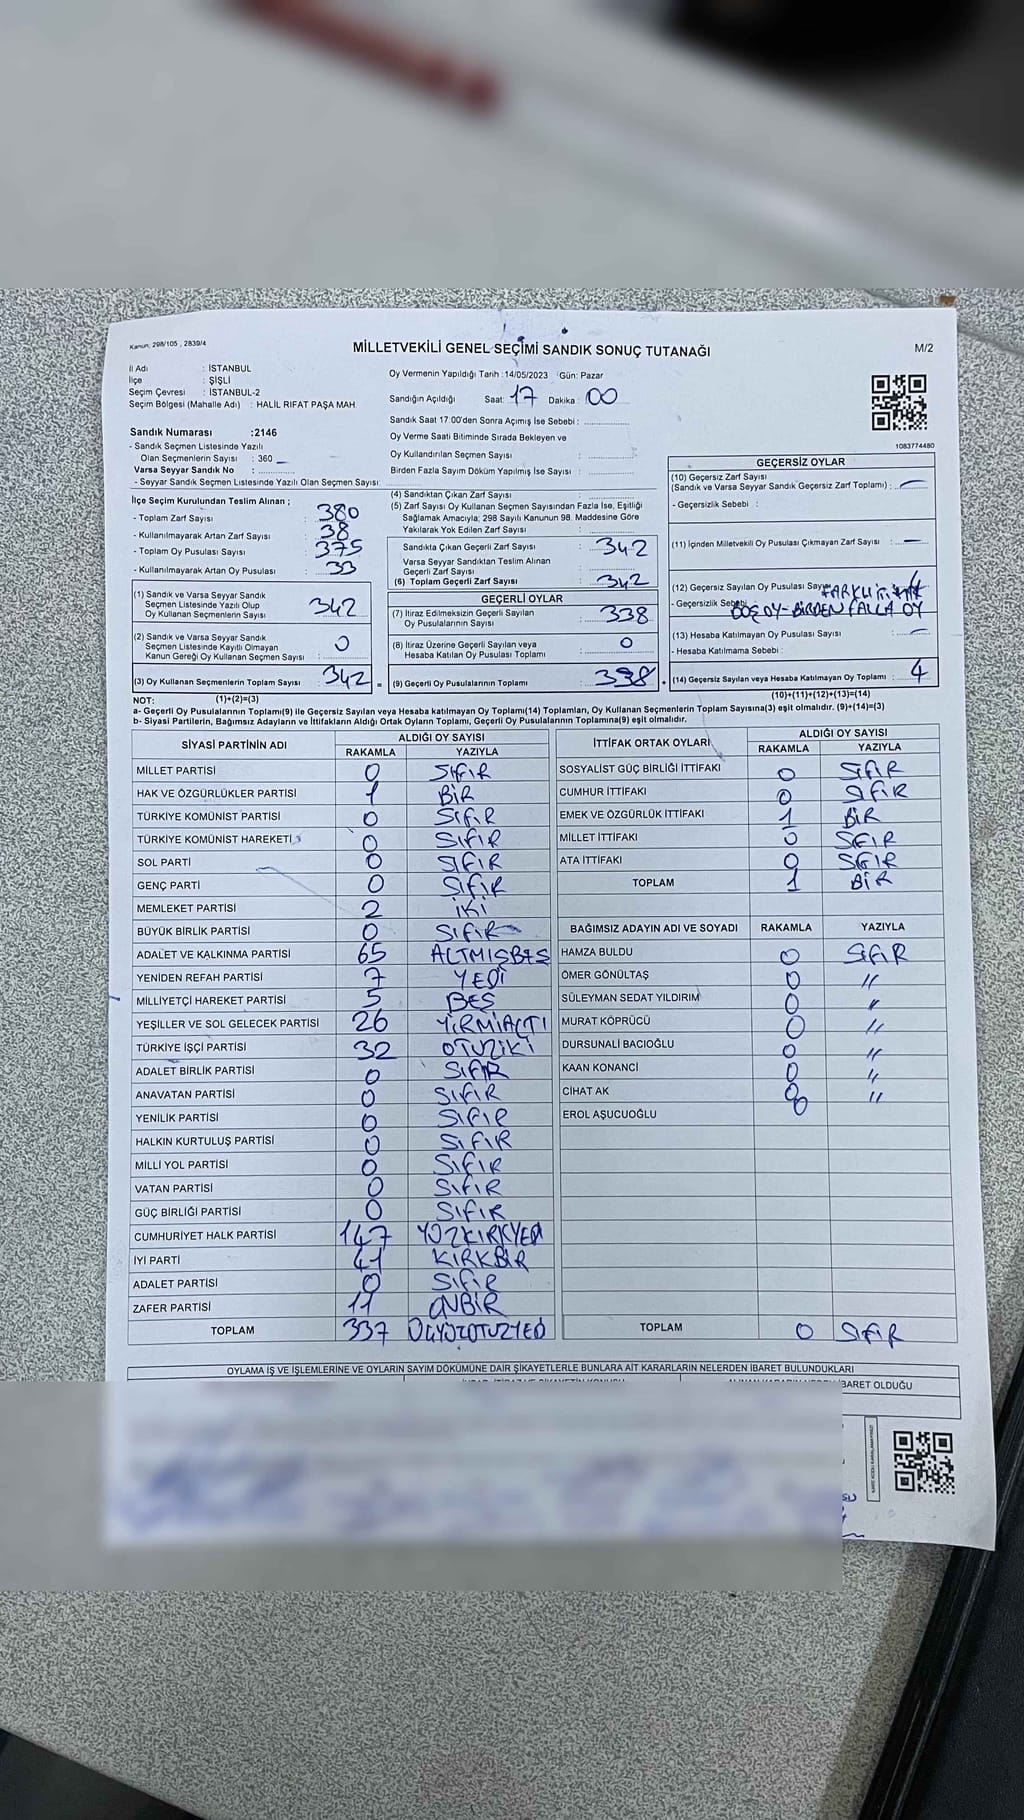 Kanun: 298/105 , 2839/4
MİLLETVEKİLİ GENEL SEÇİMİ SANDIK SONUÇ TUTANAĞI
M/2
İl Adı : İSTANBUL
İlçe : ŞİŞLİ
Seçim Çevresi : İSTANBUL-2
Seçim Bölgesi (Mahalle Adı) : HALİL RIFAT PAŞA MAH.
Sandık Numarası :2146
- Sandık Seçmen Listesinde Yazılı
Olan Seçmenlerin Sayısı : 360
Varsa Seyyar Sandık No :
- Seyyar Sandık Seçmen Listesinde Yazılı Olan Seçmen Sayısı:
Oy Vermenin Yapıldığı Tarih :14/05/2023 Gün: Pazar
Sandığın Açıldığı Saat: 17 Dakika : 00
Sandık Saat 17.00'den Sonra Açımış İse Sebebi :
Oy Verme Saati Bitiminde Sırada Bekleyen ve
Oy Kullandırılan Seçmen Sayısı :
Birden Fazla Sayım Döküm Yapılmış İse Sayısı :
1083774480
İlçe Seçim Kurulundan Teslim Alınan ;
- Toplam Zarf Sayısı : 380
- Kullanılmayarak Artan Zarf Sayısı : 38
- Toplam Oy Pusulası Sayısı : 375
- Kullanılmayarak Artan Oy Pusulası : 33
(1) Sandık ve Varsa Seyyar Sandık
Seçmen Listesinde Yazılı Olup
Oy Kullanan Seçmenlerin Sayısı : 342
(2) Sandık ve Varsa Seyyar Sandık
Seçmen Listesinde Kayıtlı Olmayan
Kanun Gereği Oy Kullanan Seçmen Sayısı : 0
(3) Oy Kullanan Seçmenlerin Toplam Sayısı : 342 =
(4) Sandıktan Çıkan Zarf Sayısı :
(5) Zarf Sayısı Oy Kullanan Seçmen Sayısından Fazla İse, Eşitliği
Sağlamak Amacıyla; 298 Sayılı Kanunun 98. Maddesine Göre
Yakılarak Yok Edilen Zarf Sayısı :
Sandıkta Çıkan Geçerli Zarf Sayısı : 342
Varsa Seyyar Sandıktan Teslim Alınan
Geçerli Zarf Sayısı :
(6) Toplam Geçerli Zarf Sayısı : 342
GEÇERLİ OYLAR
(7) İtiraz Edilmeksizin Geçerli Sayılan
Oy Pusulalarının Sayısı : 338
(8) İtiraz Üzerine Geçerli Sayılan veya
Hesaba Katılan Oy Pusulası Toplamı : 0
(9) Geçerli Oy Pusulalarının Toplamı : 338 +
GEÇERSİZ OYLAR
(10) Geçersiz Zarf Sayısı
(Sandık ve Varsa Seyyar Sandık Geçersiz Zarf Toplamı) : —
- Geçersizlik Sebebi :
(11) İçinden Milletvekili Oy Pusulası Çıkmayan Zarf Sayısı : —
(12) Geçersiz Sayılan Oy Pusulası Sayısı 4
- Geçersizlik Sebebi FARKLI
BOŞ OY-BİRDEN FALLA OY
(13) Hesaba Katılmayan Oy Pusulası Sayısı : —
- Hesaba Katılmama Sebebi :
(14) Geçersiz Sayılan veya Hesaba Katılmayan Oy Toplamı : 4
NOT: (1)+(2)=(3)
(10)+(11)+(12)+(13)=(14)
a- Geçerli Oy Pusulalarının Toplamı(9) ile Geçersiz Sayılan veya Hesaba katılmayan Oy Toplamı(14) Toplamları, Oy Kullanan Seçmenlerin Toplam Sayısına(3) eşit olmalıdır. (9)+(14)=(3)
b- Siyasi Partilerin, Bağımsız Adayların ve İttifakların Aldığı Ortak Oyların Toplamı, Geçerli Oy Pusulalarının Toplamına(9) eşit olmalıdır.
SİYASİ PARTİNİN ADI ALDIĞI OY SAYISI
RAKAMLA YAZIYLA
MİLLET PARTİSİ 0 SIFIR
HAK VE ÖZGÜRLÜKLER PARTİSİ 1 BİR
TÜRKİYE KOMÜNİST PARTİSİ 0 SIFIR
TÜRKİYE KOMÜNİST HAREKETİ 0 SIFIR
SOL PARTİ 0 SIFIR
GENÇ PARTİ 0 SIFIR
MEMLEKET PARTİSİ 2 İKİ
BÜYÜK BİRLİK PARTİSİ 0 SIFIR
ADALET VE KALKINMA PARTİSİ 65 ALTMIŞBEŞ
YENİDEN REFAH PARTİSİ 7 YEDİ
MİLLİYETÇİ HAREKET PARTİSİ 5 BEŞ
YEŞİLLER VE SOL GELECEK PARTİSİ 26 YİRMİALTI
TÜRKİYE İŞÇİ PARTİSİ 32 OTUZİKİ
ADALET BİRLİK PARTİSİ 0 SIFIR
ANAVATAN PARTİSİ 0 SIFIR
YENİLİK PARTİSİ 0 SIFIR
HALKIN KURTULUŞ PARTİSİ 0 SIFIR
MİLLİ YOL PARTİSİ 0 SIFIR
VATAN PARTİSİ 0 SIFIR
GÜÇ BİRLİĞİ PARTİSİ 0 SIFIR
CUMHURİYET HALK PARTİSİ 147 YÜZKIRKYEDİ
İYİ PARTİ 41 KIRKBİR
ADALET PARTİSİ 0 SIFIR
ZAFER PARTİSİ 11 ONBİR
TOPLAM 337 ÜÇYÜZOTUZYEDİ
İTTİFAK ORTAK OYLARI ALDIĞI OY SAYISI
RAKAMLA YAZIYLA
SOSYALİST GÜÇ BİRLİĞİ İTTİFAKI 0 SIFIR
CUMHUR İTTİFAKI 0 SIFIR
EMEK VE ÖZGÜRLÜK İTTİFAKI 1 BİR
MİLLET İTTİFAKI 0 SIFIR
ATA İTTİFAKI 0 SIFIR
TOPLAM 1 BİR
BAĞIMSIZ ADAYIN ADI VE SOYADI RAKAMLA YAZIYLA
HAMZA BULDU 0 SIFIR
ÖMER GÖNÜLTAŞ 0 "
SÜLEYMAN SEDAT YILDIRIM 0 "
MURAT KÖPRÜCÜ 0 "
DURSUNALİ BACIOĞLU 0 "
KAAN KONANCİ 0 "
CİHAT AK 0 "
EROL AŞUCUOĞLU 0
TOPLAM 0 SIFIR
OYLAMA İŞ VE İŞLEMLERİNE VE OYLARIN SAYIM DÖKÜMÜNE DAİR ŞİKAYETLERLE BUNLARA AİT KARARLARIN NELERDEN İBARET BULUNDUKLARI
İBARET OLDUĞU